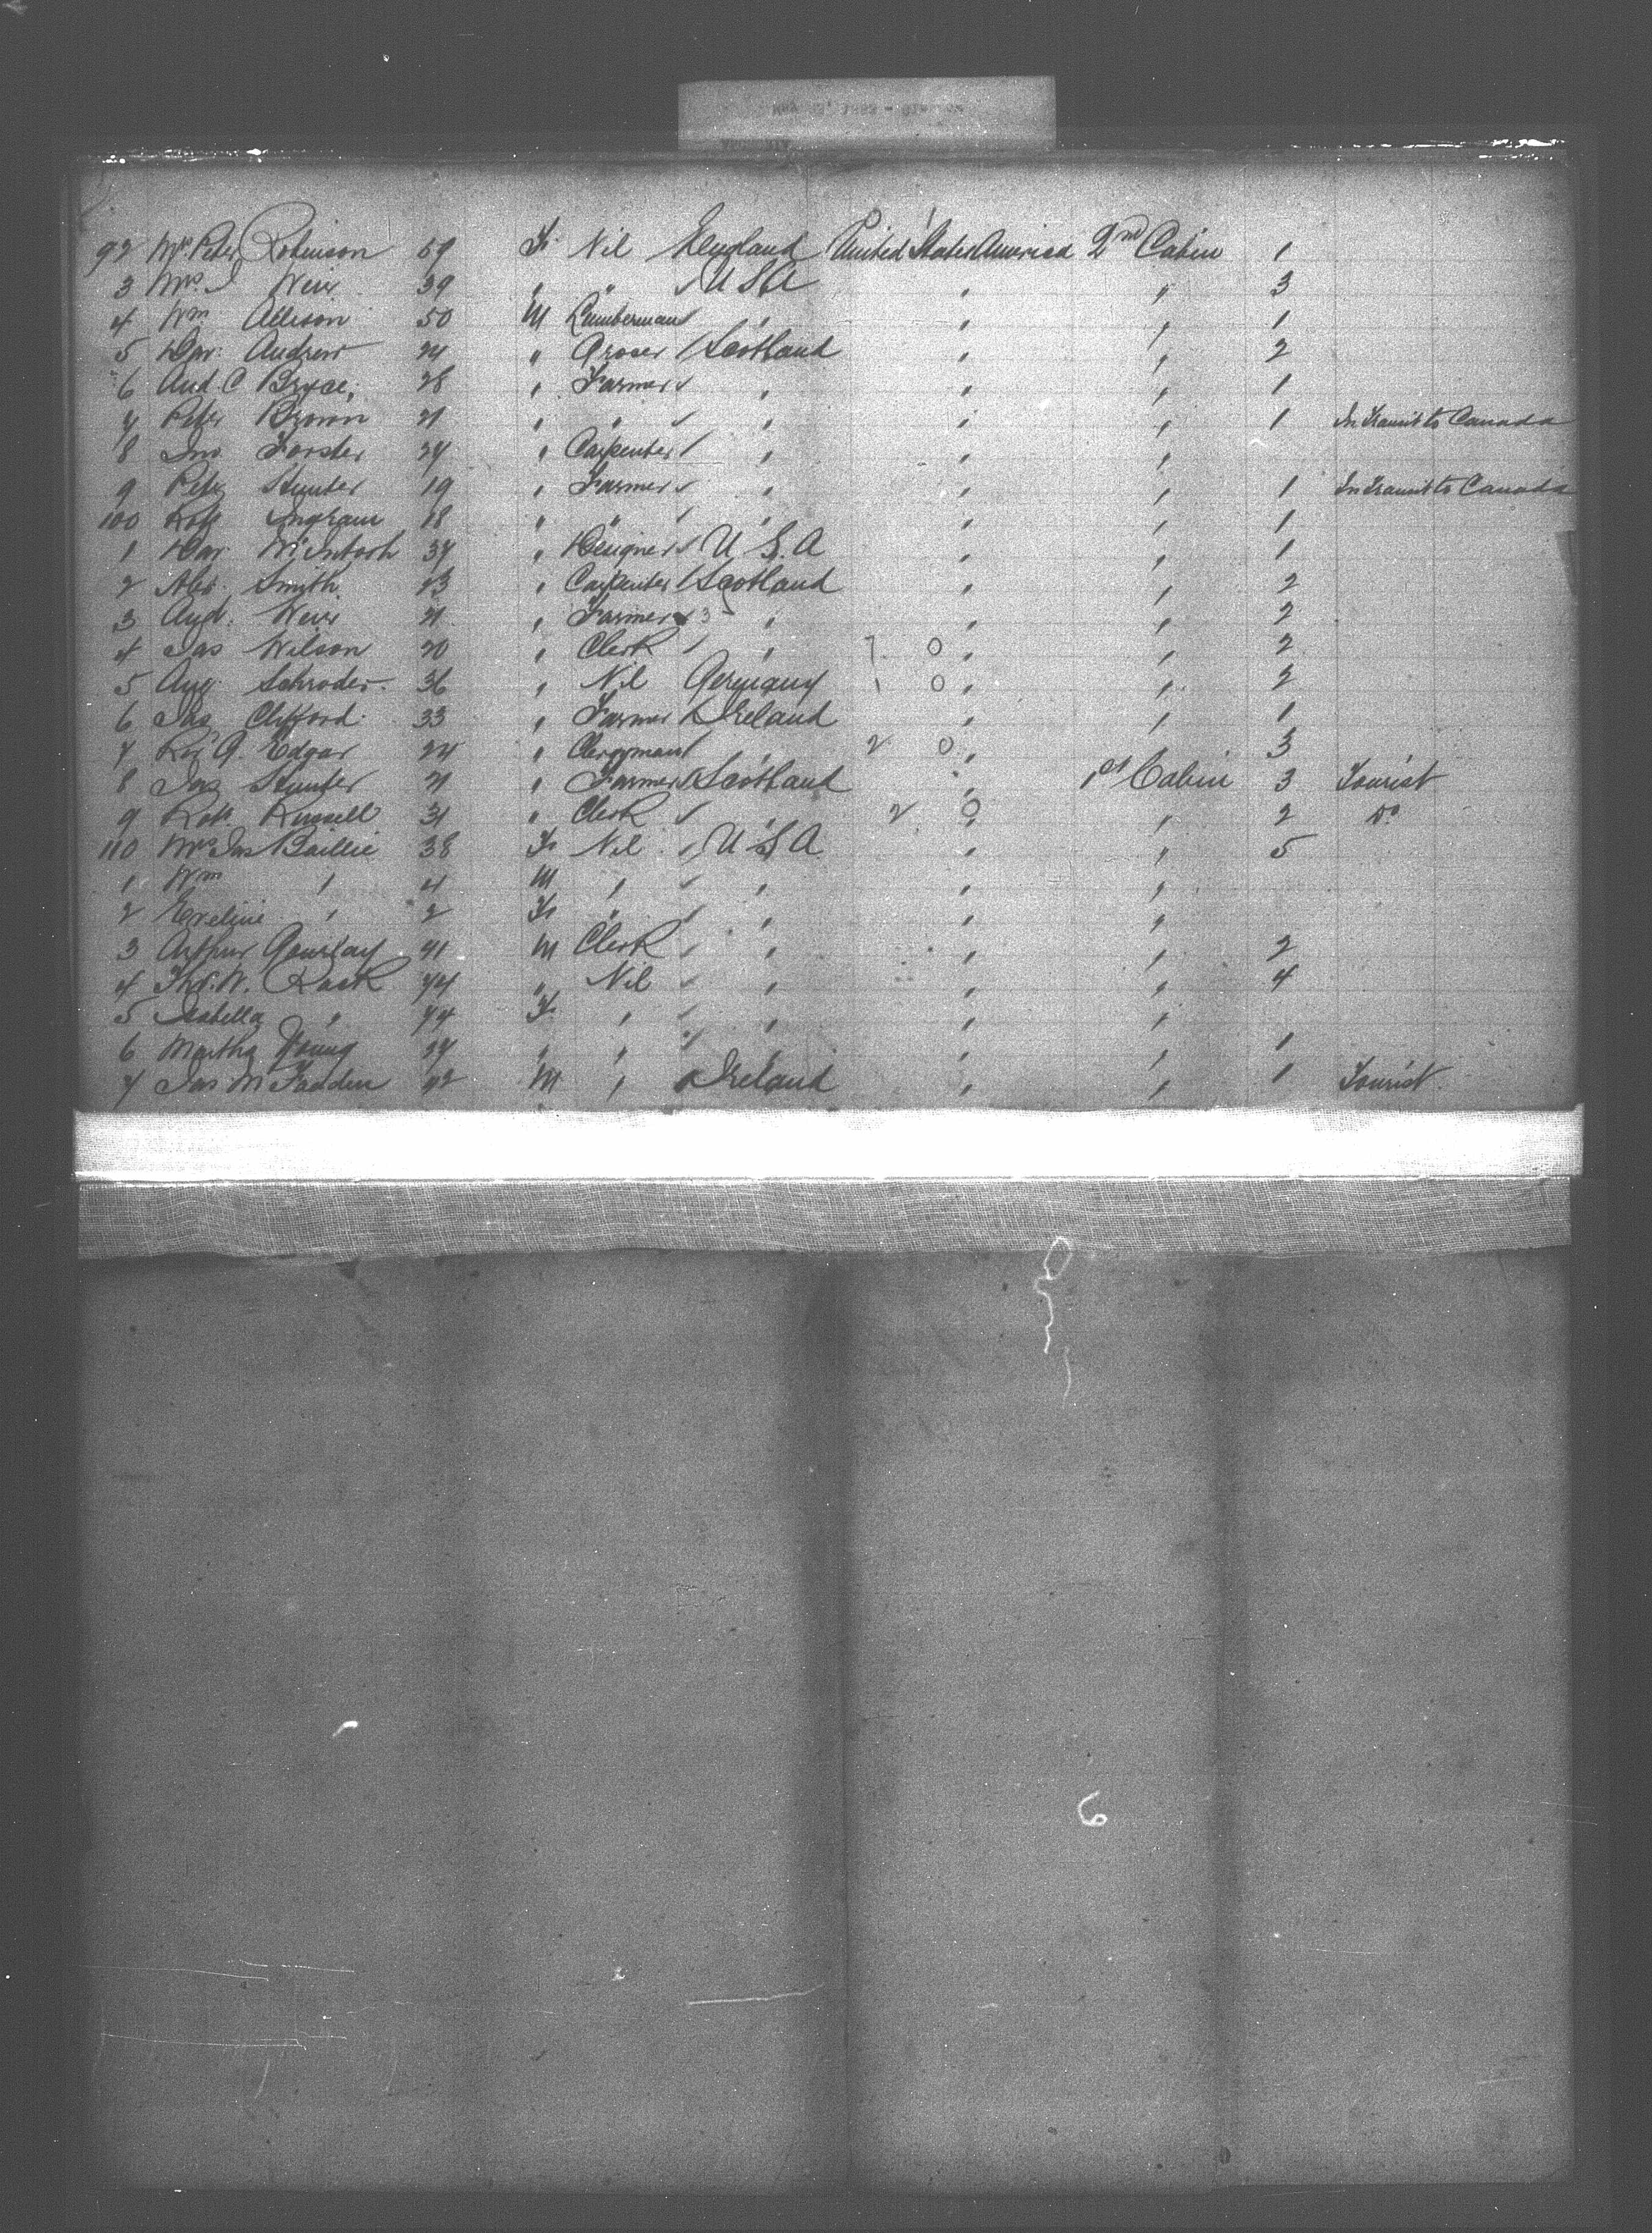 92 Mrs Peter Robinson 59 F. Nil England United States America 2nd Cabin 1
3 Mrs J Weir 39 " " ✓ U S A " " 3
4 Wm Allison 50 M Lumberman " " " 1
5 Dav. Andrew 24 " Grocer Scotland " " 2
6 And C Bryce 28 " Farmer ✓ " " " 1
7 Peter Brown 21 " " ✓ " " " 1 In transit to Canada
8 Jno. Forster 24 " Carpenter " " "
9 Peter Hunter 19 " Farmer ✓ " " " 1 In transit to Canada
100 Robt Ingram 18 " " " " " 1
1 Dav. McIntosh 37 " Designer ✓ U S. A " " 1
2 Alex. Smith 23 " Carpenter Scotland " " 2
3 Andr. Weir 21 " Farmer " " " 2
4 Jas Wilson 20 " Clerk " 0 " " 2
5 Aug. Schroder 36 " Nil Germany 0 " " 2
6 Jas Clifford 33 " Farmer Ireland " " 1
7 Revd G. Edgar 24 " Clergyman " 2 0 " " 3
8 Hunter 21 " Farmer Scotland " 1st Cabin 3 Tourist
9 Robt. Russell 31 " Clerk ✓ " 2 0 " " 2 Do
110 Mrs Jas Baillie 38 F. Nil U S A " " 5
1 Wm " 4 M " ✓ " " "
2 Eveline " 2 F. " " " "
3 Arthur Gourlay 41 M Clerk " " " 2
4 Thos. W. 44 " Nil " " " 4
5 Isabella " 44 F. " " " "
6 Martha Young 27 " " " " " 1
7 Jas McFadden 42 M " Ireland " " 1 Tourist